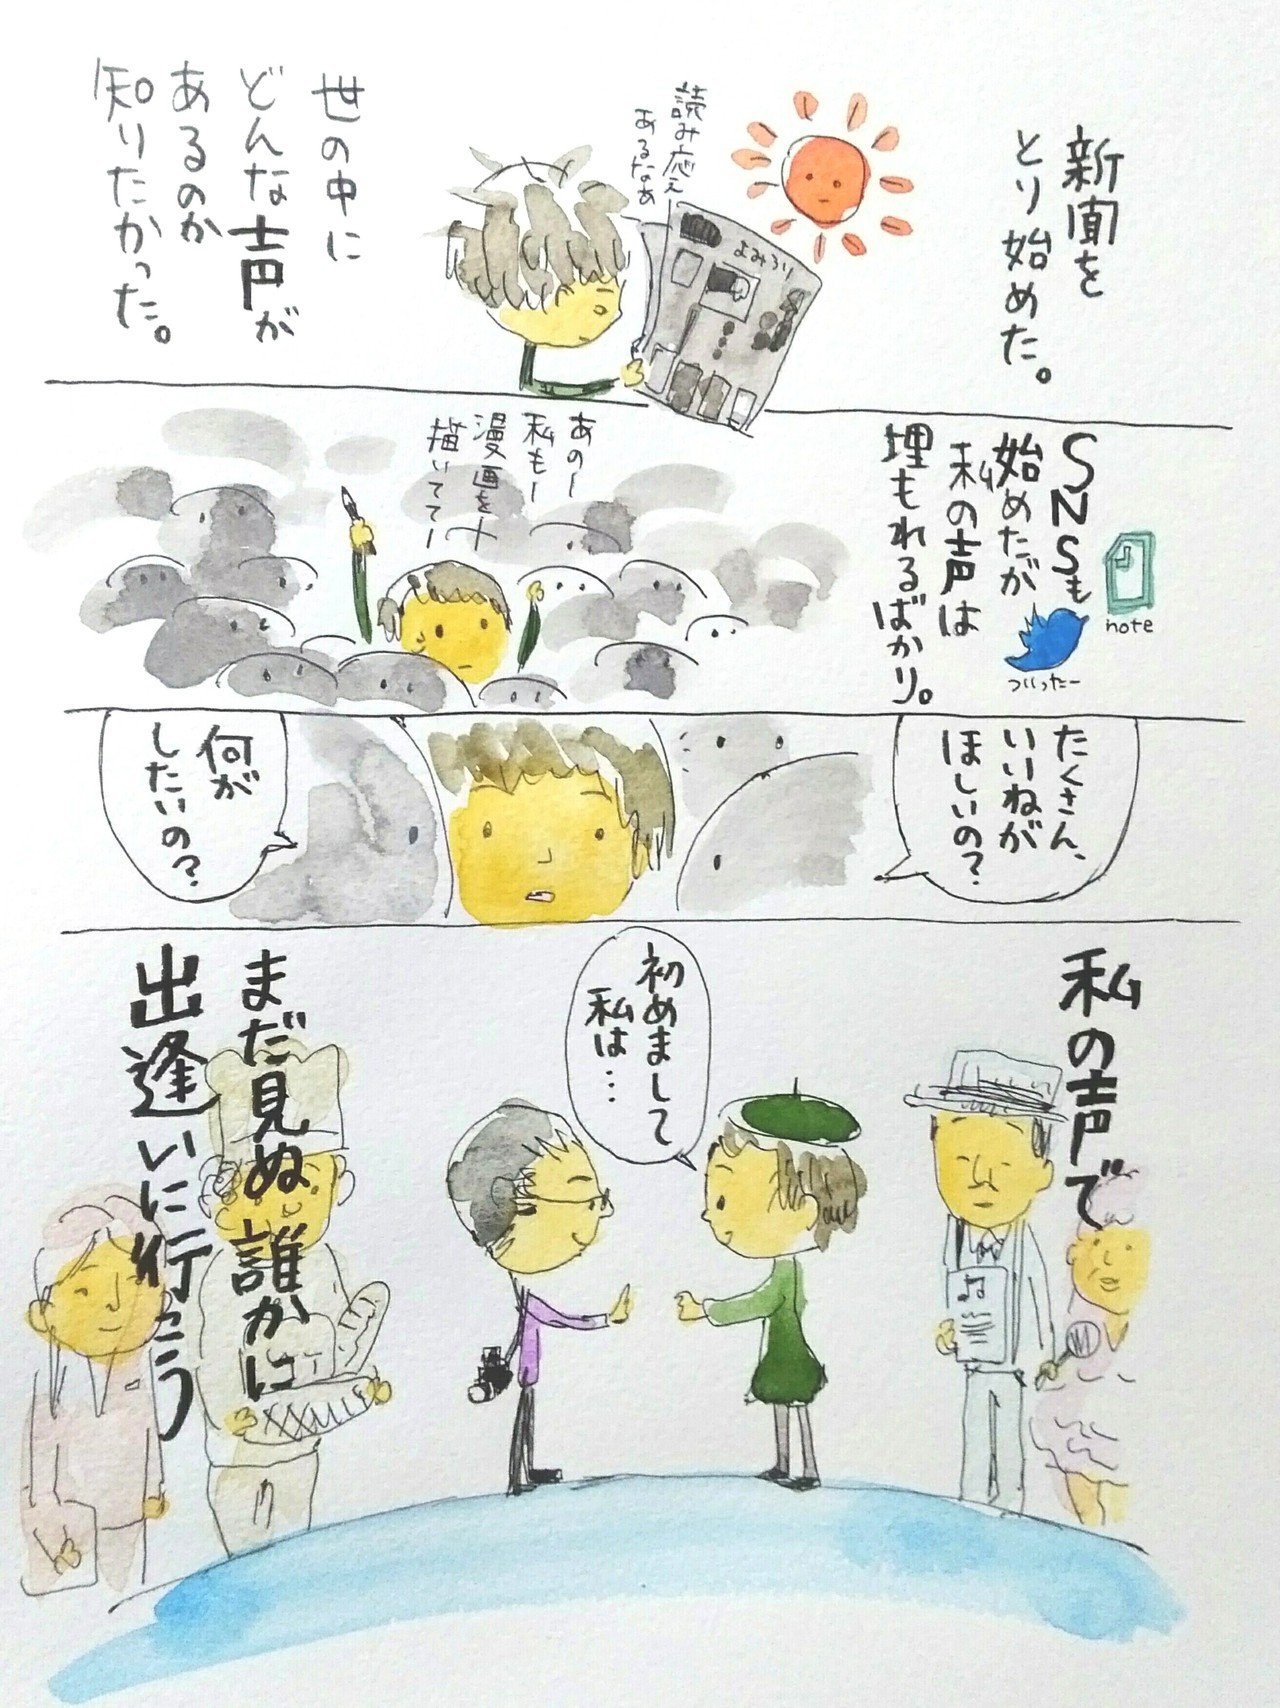 新聞を
とり始めた。
読み応え
あるなぁ
よみうり
世の中に
どんな声が
あるのか
知りたかった。
SNSも
始めたが
私の声は
埋もれるばかり。
note
ついったー
あのー
私もー
漫画をー
描いててー
たくさん、
いいねが
ほしいの?
何が
したいの?
私の声で
初めまして
私は…
まだ見ぬ誰かに
出逢いに行こう